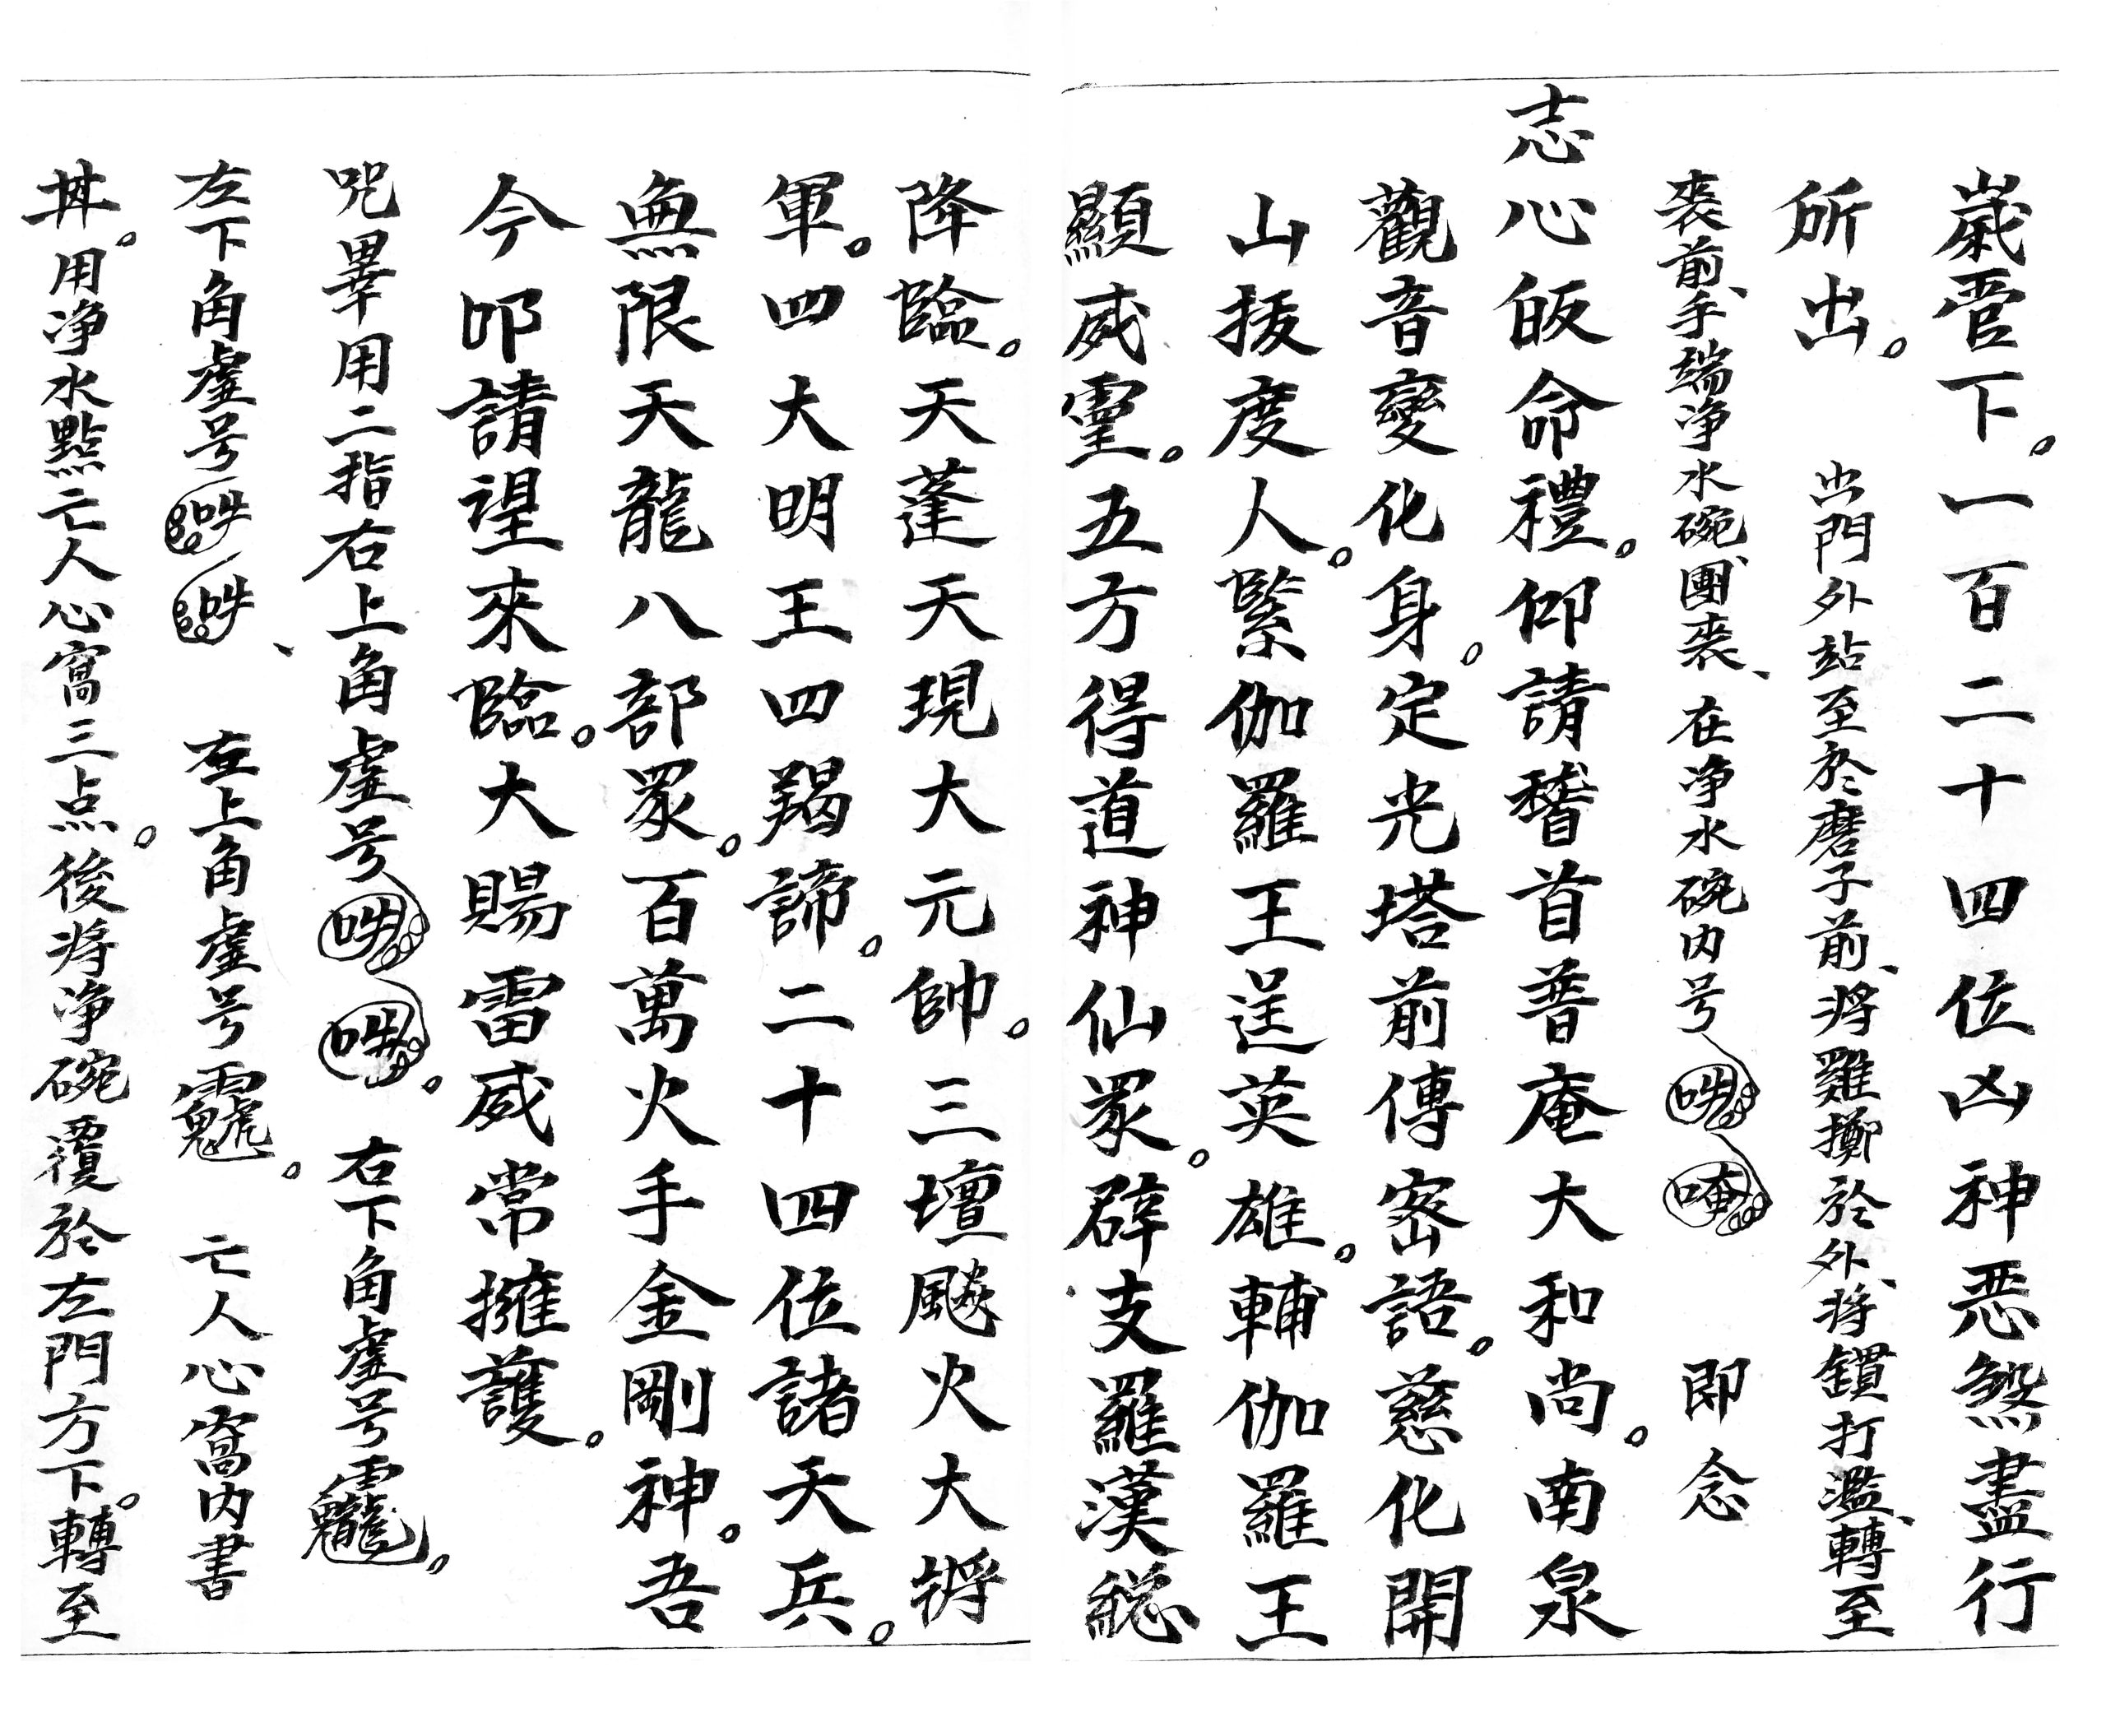 嵗管下。一百二十四位凶神恶煞盡行
所出。出門外站至於磨子前、将雞擲於外、将鏆打濫、轉至
喪前、手端净水碗、團喪、在净水碗内号㕸唵即念
志心皈命禮。仰請稽首普庵大和尚。南泉
觀音變化身。定光塔前傳宻語。慈化開
山拔度人。緊伽羅王逞英雄。輔伽羅王
顯威靈。五方得道神仙眾。辟支羅漢總
降臨。天蓬天現大元帥。三壇飈火大将
軍。四大明王四羯諦。二十四位諸天兵。
無限天龍八部眾。百萬火手金剛神。吾
今叩請望來臨。大賜雷威常擁護。
咒畢用二指右上角虚号㕸㕸。右下角虚号。
左下角虚号㕸㕸、左上角虚号。亡人心窩内書
丼。用净水點亡人心窩三点。後将净碗覆於左門方下。轉至